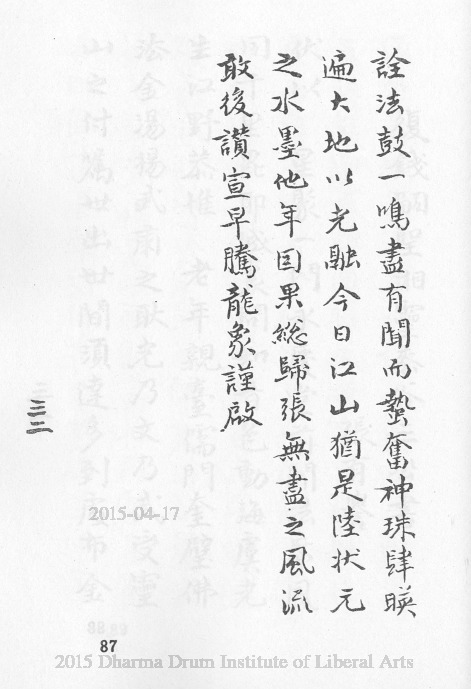 詮法鼓一鳴盡有聞而蟄奮神珠肆暎
遍大地以光融今日江山猶是陸状元
之水墨他年因果総歸張無盡之風流
敢後讚宣早騰龍象謹啟
三二
2015-04-17
87
2015 Dharma Drum Institute of Liberal Arts